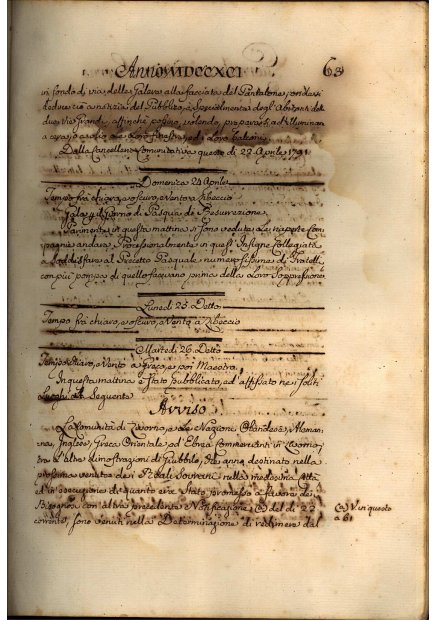 Anno MDCCXCI 63
in fondo di via delle Galere alla facciata del Pantalone, onde si
deduce a notizia del Pubblico, e specialmente degl'Abitanti delle
due Vie Grandi affinchè possino, volendo, prepararsi ad illuminare
a cera, o a olio le Loro finestre, ed i Loro Balconi
Dalla Cancelleria Comunitativa questo dì 23 Aprile 1791
Domenica 24 Aprile
Tempo frà chiaro, e oscuro, e Vento a Libeccio
Gala, e Giorno di Pasqua di Resurrezione
in questa mattina si sono vedute Le
andare Processionalmente in quest' Insigne Collegiata
a Soddisfare al Precetto Pasquale numerosissime di Fratelli
con più pompa di quello facevano prima della Loro Soppressione
Lunedì 25 Detto
Tempo frà chiaro, e oscuro, e Vento a Libeccio
Martedì 26 Detto
Tempo chiaro, e Vento a Greco, e poi Maestro
In questa mattina è Stato pubblicato, ed affissato ne soliti
Luoghi il Seguente
Avviso
La Comunità di Livorno, e Le Nazioni Olandese, Aleman-
na, Inglese, Greca Orientale, ed Ebrea Commercianti in Livorno,
tra l'altre dimostrazioni di Giubbilo, che anno destinato nella
prossima venuta dei Reali Sovrani nella medesima Città
ed in esecuzione di quanto era Stato promesso a favore dei
Bisognosi con altra precedente Notificazione (a) del dì 22
corrente, sono venuti nella Determinazione di redimere dal
(a) V. in questo
a 61